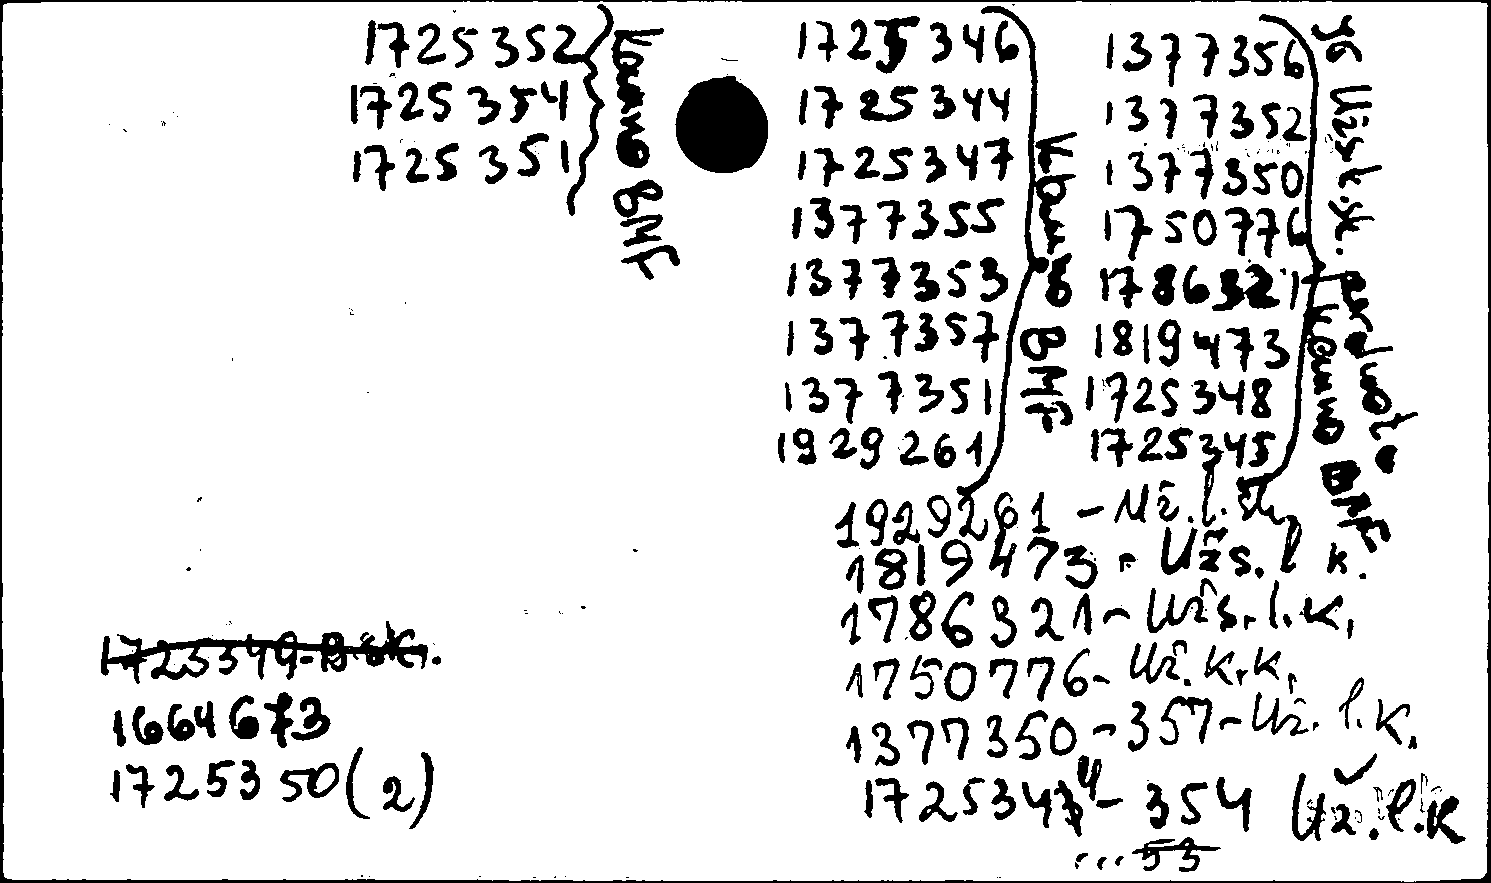 1725352
1725354
1725351
Kauno BMF
1725346
1725344
1725347
1377355
1377353
1377357
1377351
1929261
Kauno BMF
1377356
1377352
1377350
1750776
1786321
1819473
1725348
1725345
iš Užs.l.k.
Kauno BMF
1929261 - Už.l.
1819473 - Užs.l k.
1786321 - Užs.l.k.
1750776 - Už.k.k.
1377350 - 357 - Už. l.k.
1725344 - 354 Už.l.k
...53
1725349 - B.
1664673
1725350 (2)